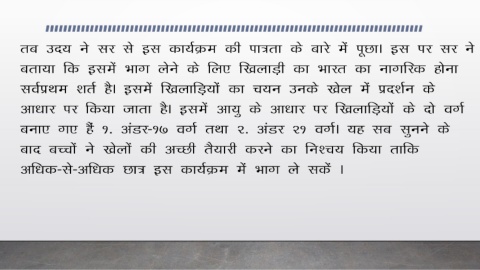 तब उदय ने सर से इस कार्यक्रम की पात्रता के बारे में पूछा। इस पर सर ने
बताया कि इसमें भाग लेने के लिए खिलाड़ी का भारत का नागरिक होना
सर्वप्रथम शर्त है। इसमें खिलाड़ियों का चयन उनके खेल में प्रदर्शन के
आधार पर किया जाता है। इसमें आयु के आधार पर खिलाड़ियों के दो वर्ग
बनाए गए हैं १. अंडर-१७ वर्ग तथा २. अंडर २१ वर्ग। यह सब सुनने के
बाद बच्चों ने खेलों की अच्छी तैयारी करने का निश्चय किया ताकि
अधिक-से-अधिक छात्र इस कार्यक्रम में भाग ले सकें ।